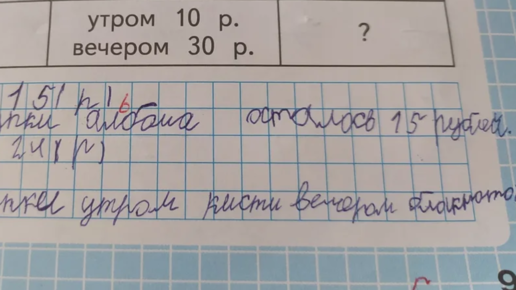 утром 10 р.
вечером 30 р.
?
15 (р)
пки албома осталось 15 рублей.
24 (р)
утром кисти вечером блокното
9